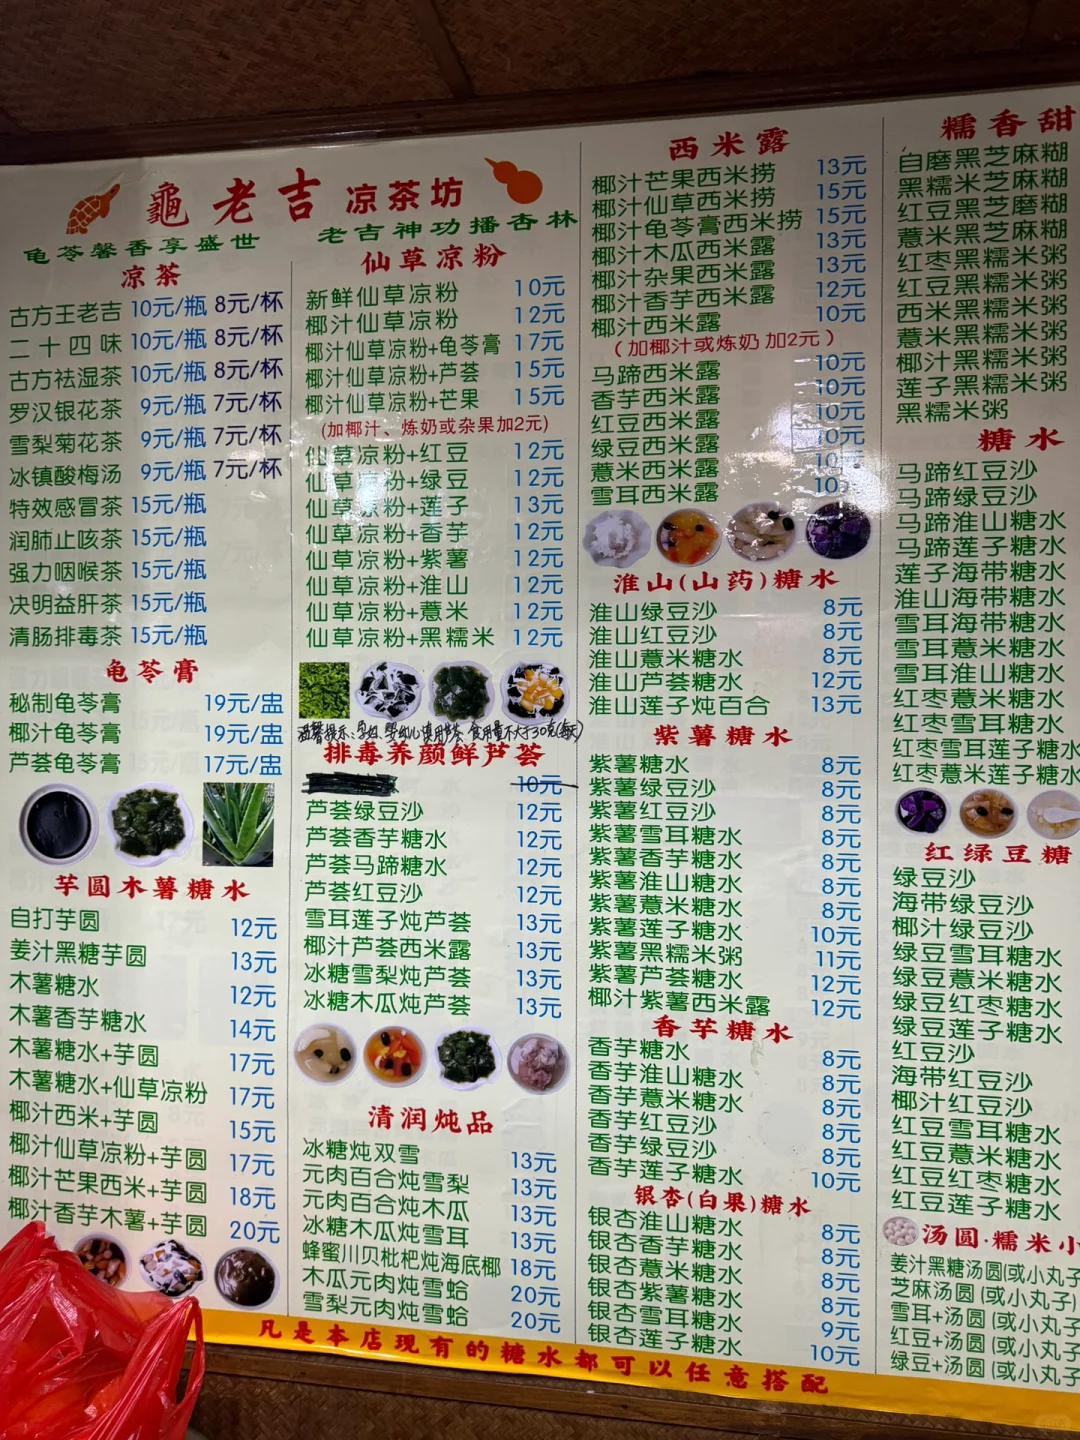 龜老吉 凉茶坊
龟苓馨香享盛世 老吉神功播杏林
凉茶
古方王老吉 10元/瓶 8元/杯
二十四味 10元/瓶 8元/杯
古方祛湿茶 10元/瓶 8元/杯
罗汉银花茶 9元/瓶 7元/杯
雪梨菊花茶 9元/瓶 7元/杯
冰镇酸梅汤 9元/瓶 7元/杯
特效感冒茶 15元/瓶
润肺止咳茶 15元/瓶
强力咽喉茶 15元/瓶
决明益肝茶 15元/瓶
清肠排毒茶 15元/瓶
龟苓膏
秘制龟苓膏 19元/盅
椰汁龟苓膏 19元/盅
芦荟龟苓膏 17元/盅
芋圆木薯糖水
自打芋圆 12元
姜汁黑糖芋圆 13元
木薯糖水 12元
木薯香芋糖水 14元
木薯糖水+芋圆 17元
木薯糖水+仙草凉粉 17元
椰汁西米+芋圆 15元
椰汁仙草凉粉+芋圆 17元
椰汁芒果西米+芋圆 18元
椰汁香芋木薯+芋圆 20元
仙草凉粉
新鲜仙草凉粉 10元
椰汁仙草凉粉 12元
椰汁仙草凉粉+龟苓膏 17元
椰汁仙草凉粉+芦荟 15元
椰汁仙草凉粉+芒果 15元
(加椰汁、炼奶或杂果加2元)
仙草凉粉+红豆 12元
仙草凉粉+绿豆 12元
仙草凉粉+莲子 13元
仙草凉粉+香芋 12元
仙草凉粉+紫薯 12元
仙草凉粉+淮山 12元
仙草凉粉+薏米 12元
仙草凉粉+黑糯米 12元
温馨提示:孕妇、婴幼儿慎用芦荟 食用量不大于30克(每天)
排毒养颜鲜芦荟
10元
芦荟绿豆沙 12元
芦荟香芋糖水 12元
芦荟马蹄糖水 12元
芦荟红豆沙 12元
雪耳莲子炖芦荟 13元
椰汁芦荟西米露 13元
冰糖雪梨炖芦荟 13元
冰糖木瓜炖芦荟 13元
清润炖品
冰糖炖双雪 13元
元肉百合炖雪梨 13元
元肉百合炖木瓜 13元
冰糖木瓜炖雪耳 13元
蜂蜜川贝枇杷炖海底椰 18元
木瓜元肉炖雪蛤 20元
雪梨元肉炖雪蛤 20元
西米露
椰汁芒果西米捞 13元
椰汁仙草西米捞 15元
椰汁龟苓膏西米捞 15元
椰汁木瓜西米露 13元
椰汁杂果西米露 13元
椰汁香芋西米露 12元
椰汁西米露 10元
(加椰汁或炼奶 加2元)
马蹄西米露 10元
香芋西米露 10元
红豆西米露 10元
绿豆西米露 10元
薏米西米露 10元
雪耳西米露 10元
淮山(山药)糖水
淮山绿豆沙 8元
淮山红豆沙 8元
淮山薏米糖水 8元
淮山芦荟糖水 12元
淮山莲子炖百合 13元
紫薯糖水
紫薯糖水 8元
紫薯绿豆沙 8元
紫薯红豆沙 8元
紫薯雪耳糖水 8元
紫薯香芋糖水 8元
紫薯淮山糖水 8元
紫薯薏米糖水 8元
紫薯莲子糖水 10元
紫薯黑糯米粥 11元
紫薯芦荟糖水 12元
椰汁紫薯西米露 12元
香芋糖水
香芋糖水 8元
香芋淮山糖水 8元
香芋薏米糖水 8元
香芋红豆沙 8元
香芋绿豆沙 8元
香芋莲子糖水 10元
银杏(白果)糖水
银杏淮山糖水 8元
银杏香芋糖水 8元
银杏薏米糖水 8元
银杏紫薯糖水 8元
银杏雪耳糖水 9元
银杏莲子糖水 10元
糯香甜
自磨黑芝麻糊
黑糯米芝麻糊
红豆黑芝磨糊
薏米黑芝麻糊
红枣黑糯米粥
红豆黑糯米粥
西米黑糯米粥
薏米黑糯米粥
椰汁黑糯米粥
莲子黑糯米粥
黑糯米粥
糖水
马蹄红豆沙
马蹄绿豆沙
马蹄淮山糖水
马蹄莲子糖水
莲子海带糖水
淮山海带糖水
雪耳海带糖水
雪耳薏米糖水
雪耳淮山糖水
红枣薏米糖水
红枣莲子糖水
红枣雪耳莲子糖水
红枣薏米莲子糖水
红绿豆糖
绿豆沙
海带绿豆沙
椰汁绿豆沙
绿豆雪耳糖水
绿豆薏米糖水
绿豆红枣糖水
绿豆莲子糖水
红豆沙
海带红豆沙
椰汁红豆沙
红豆雪耳糖水
红豆薏米糖水
红豆红枣糖水
红豆莲子糖水
汤圆·糯米小
姜汁黑糖汤圆(或小丸子
芝麻汤圆(或小丸子)
雪耳+汤圆(或小丸子
红豆+汤圆(或小丸子
绿豆+汤圆(或小丸子
凡是本店现有的糖水都可以任意搭配